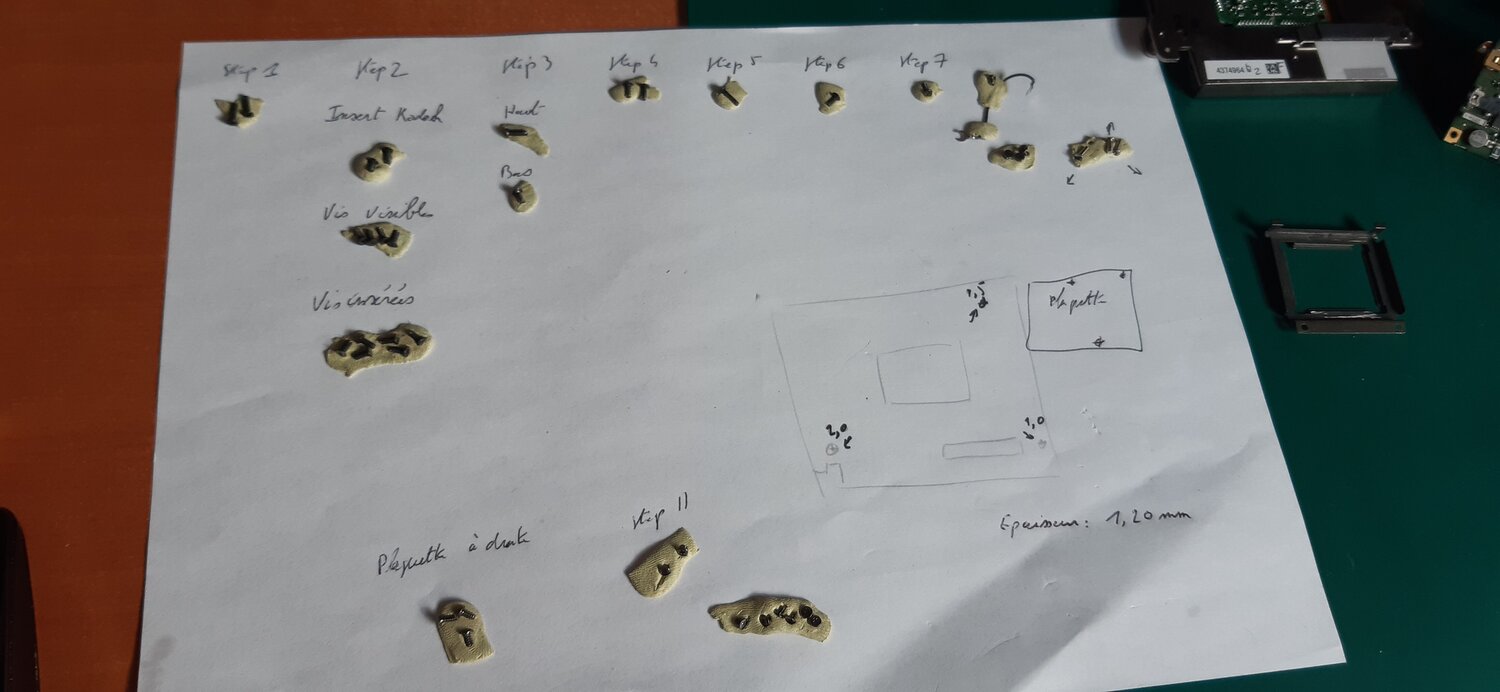 Step 1
Step 2
Step 3
Step 4
Step 5
Step 6
Step 7
Insert Kodak
Haut
Bas
Vis visibles
Vis insérées
4374964 2
1,5
Plaquette
2,0
1,0
Epaisseur: 1,20 mm
Step 11
Plaquette à droite